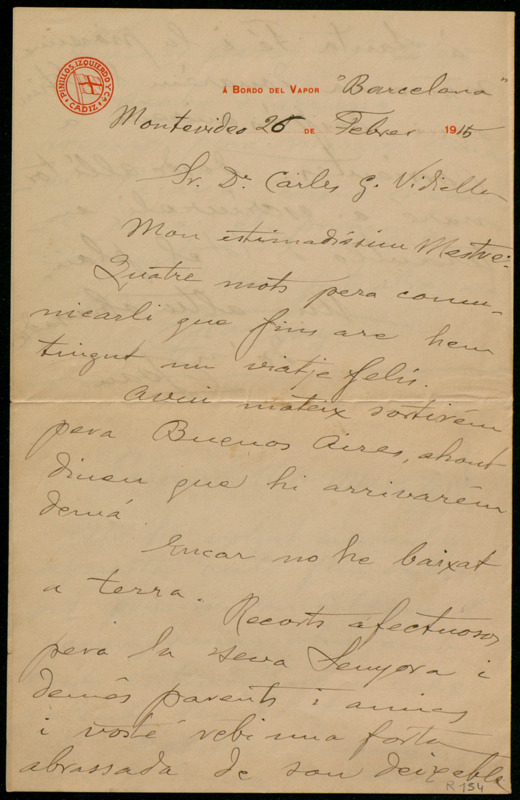 PINILLOS, IZQUIERDO Y Cª
CÁDIZ
Á BORDO DEL VAPOR "Barcelona"
Montevideo 26 DE Febrer 1915
Sr. Dn. Carles G. Vidiella
Mon estimadíssim Mestre:
Quatre mots pera comu-
nicarli que fins are hem
tingut un viatje felís.
Avui mateix sortirém
pera Buenos Aires, ahont
dieuen que hi arrivarém
demá.
Encar no he baixat
a terra. Recorts afectuosos
pera la seva Senyora i
demés parents i amics
i vosté rebi una forta
abrassada de son deixeble
R 154